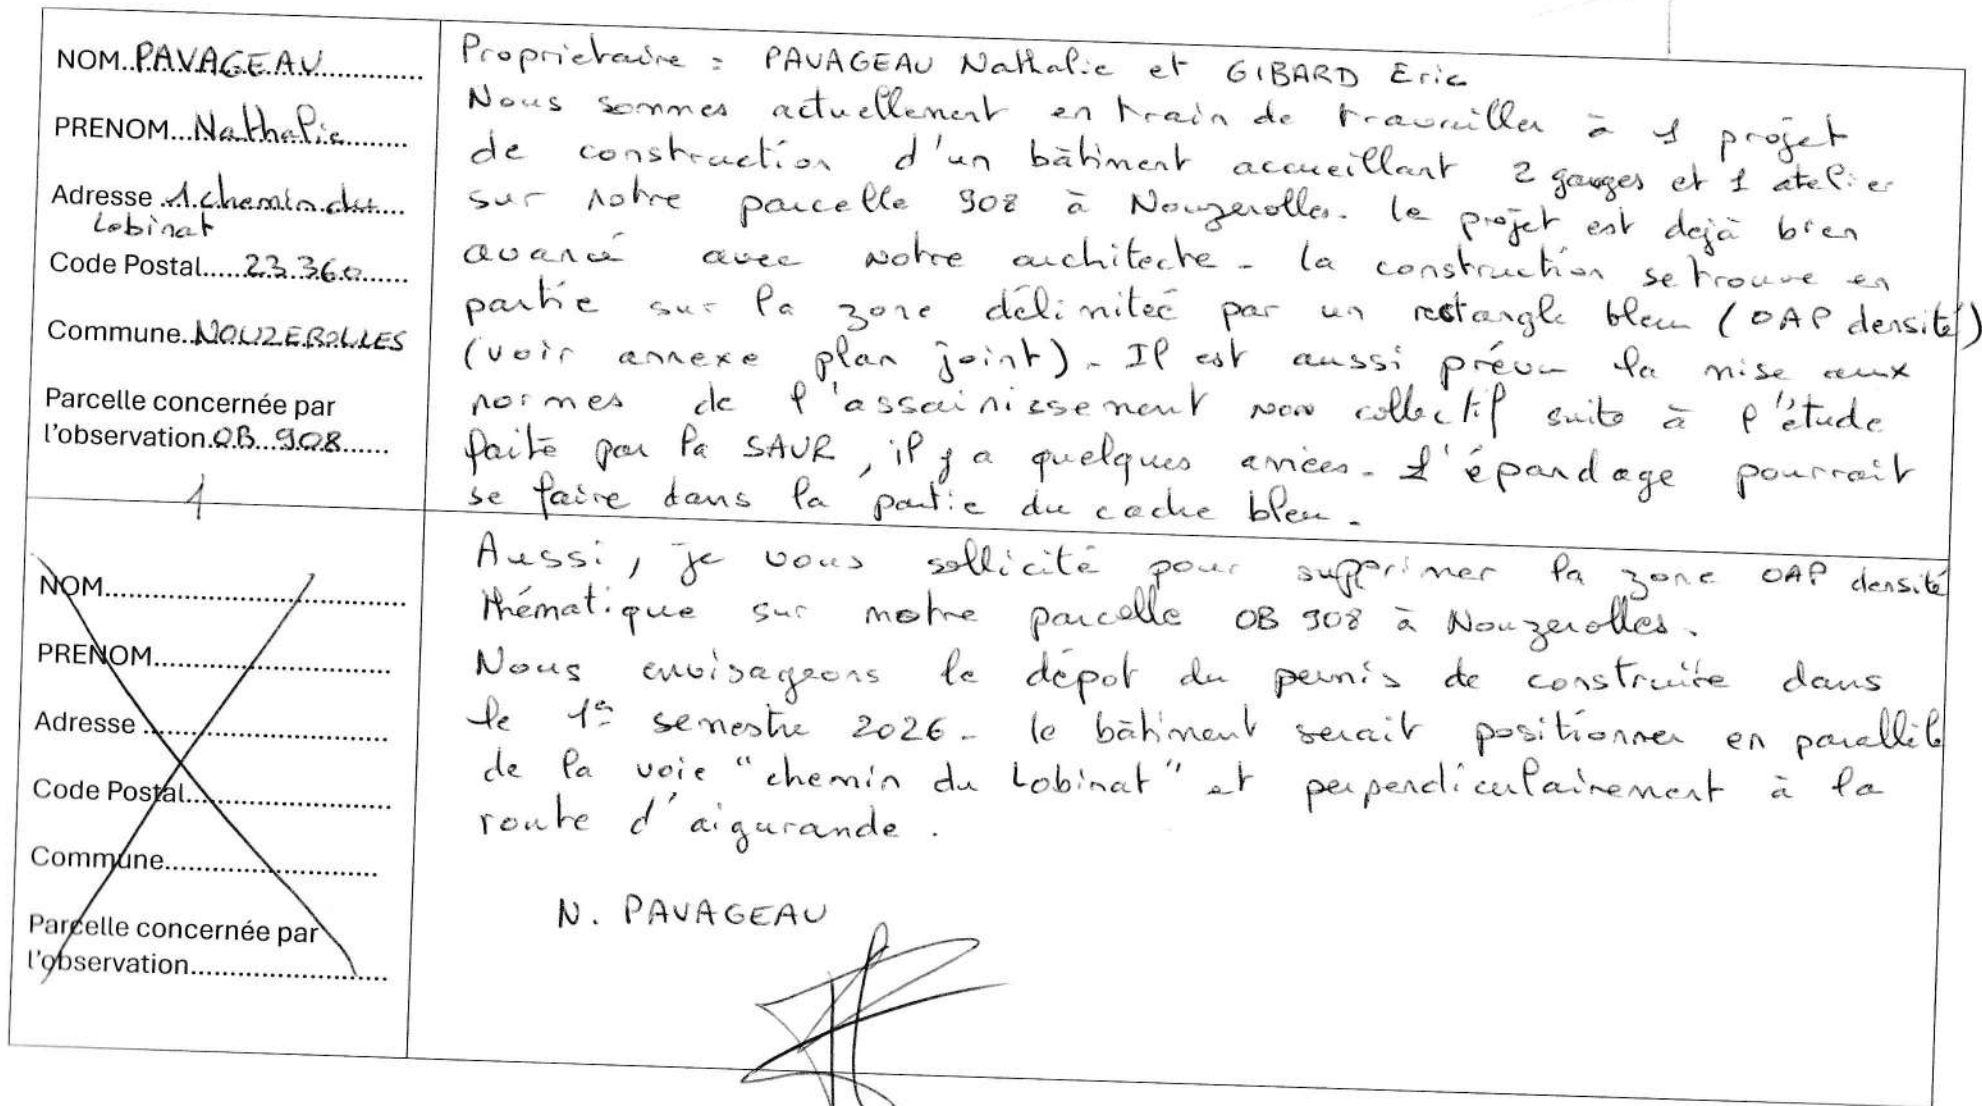 NOM..PAVAGEAU
PRENOM...Nathalie
Adresse 1.chemin.du
Lobinat
Code Postal.....23.360
Commune..NOUZEROLLES
Parcelle concernée par
l'observation.OB...908
1
Proprietaire : PAVAGEAU Nathalie et GIBARD Eric
Nous sommes actuellement en train de travailler à 1 projet
de construction d'un bâtiment accueillant 2 garages et 1 atelier
sur notre parcelle 908 à Nouzerolles. le projet est dejà bien
avancé avec notre architecte - la construction se trouve en
partie sur la zone délimiteé par un rectangle bleu (OAP densité)
(voir annexe plan joint) - Il est aussi prévu la mise aux
normes de l'assainissement non collectif suite à l'étude
faite par la SAUR, il y a quelques années - L'épandage pourrait
se faire dans la partie du cadre bleu.
NOM
PRENOM
Adresse
Code Postal
Commune
Parcelle concernée par
l'observation
Aussi, je vous sollicité pour supprimer la zone OAP densité
thématique sur notre parcelle OB 908 à Nouzerolles.
Nous envisageons le dépot du permis de construire dans
le 1er semestre 2026 - le bâtiment serait positionner en parallèle
de la voie "chemin du Lobinat" et perpendiculairement à la
route d'aigurande.
N. PAVAGEAU